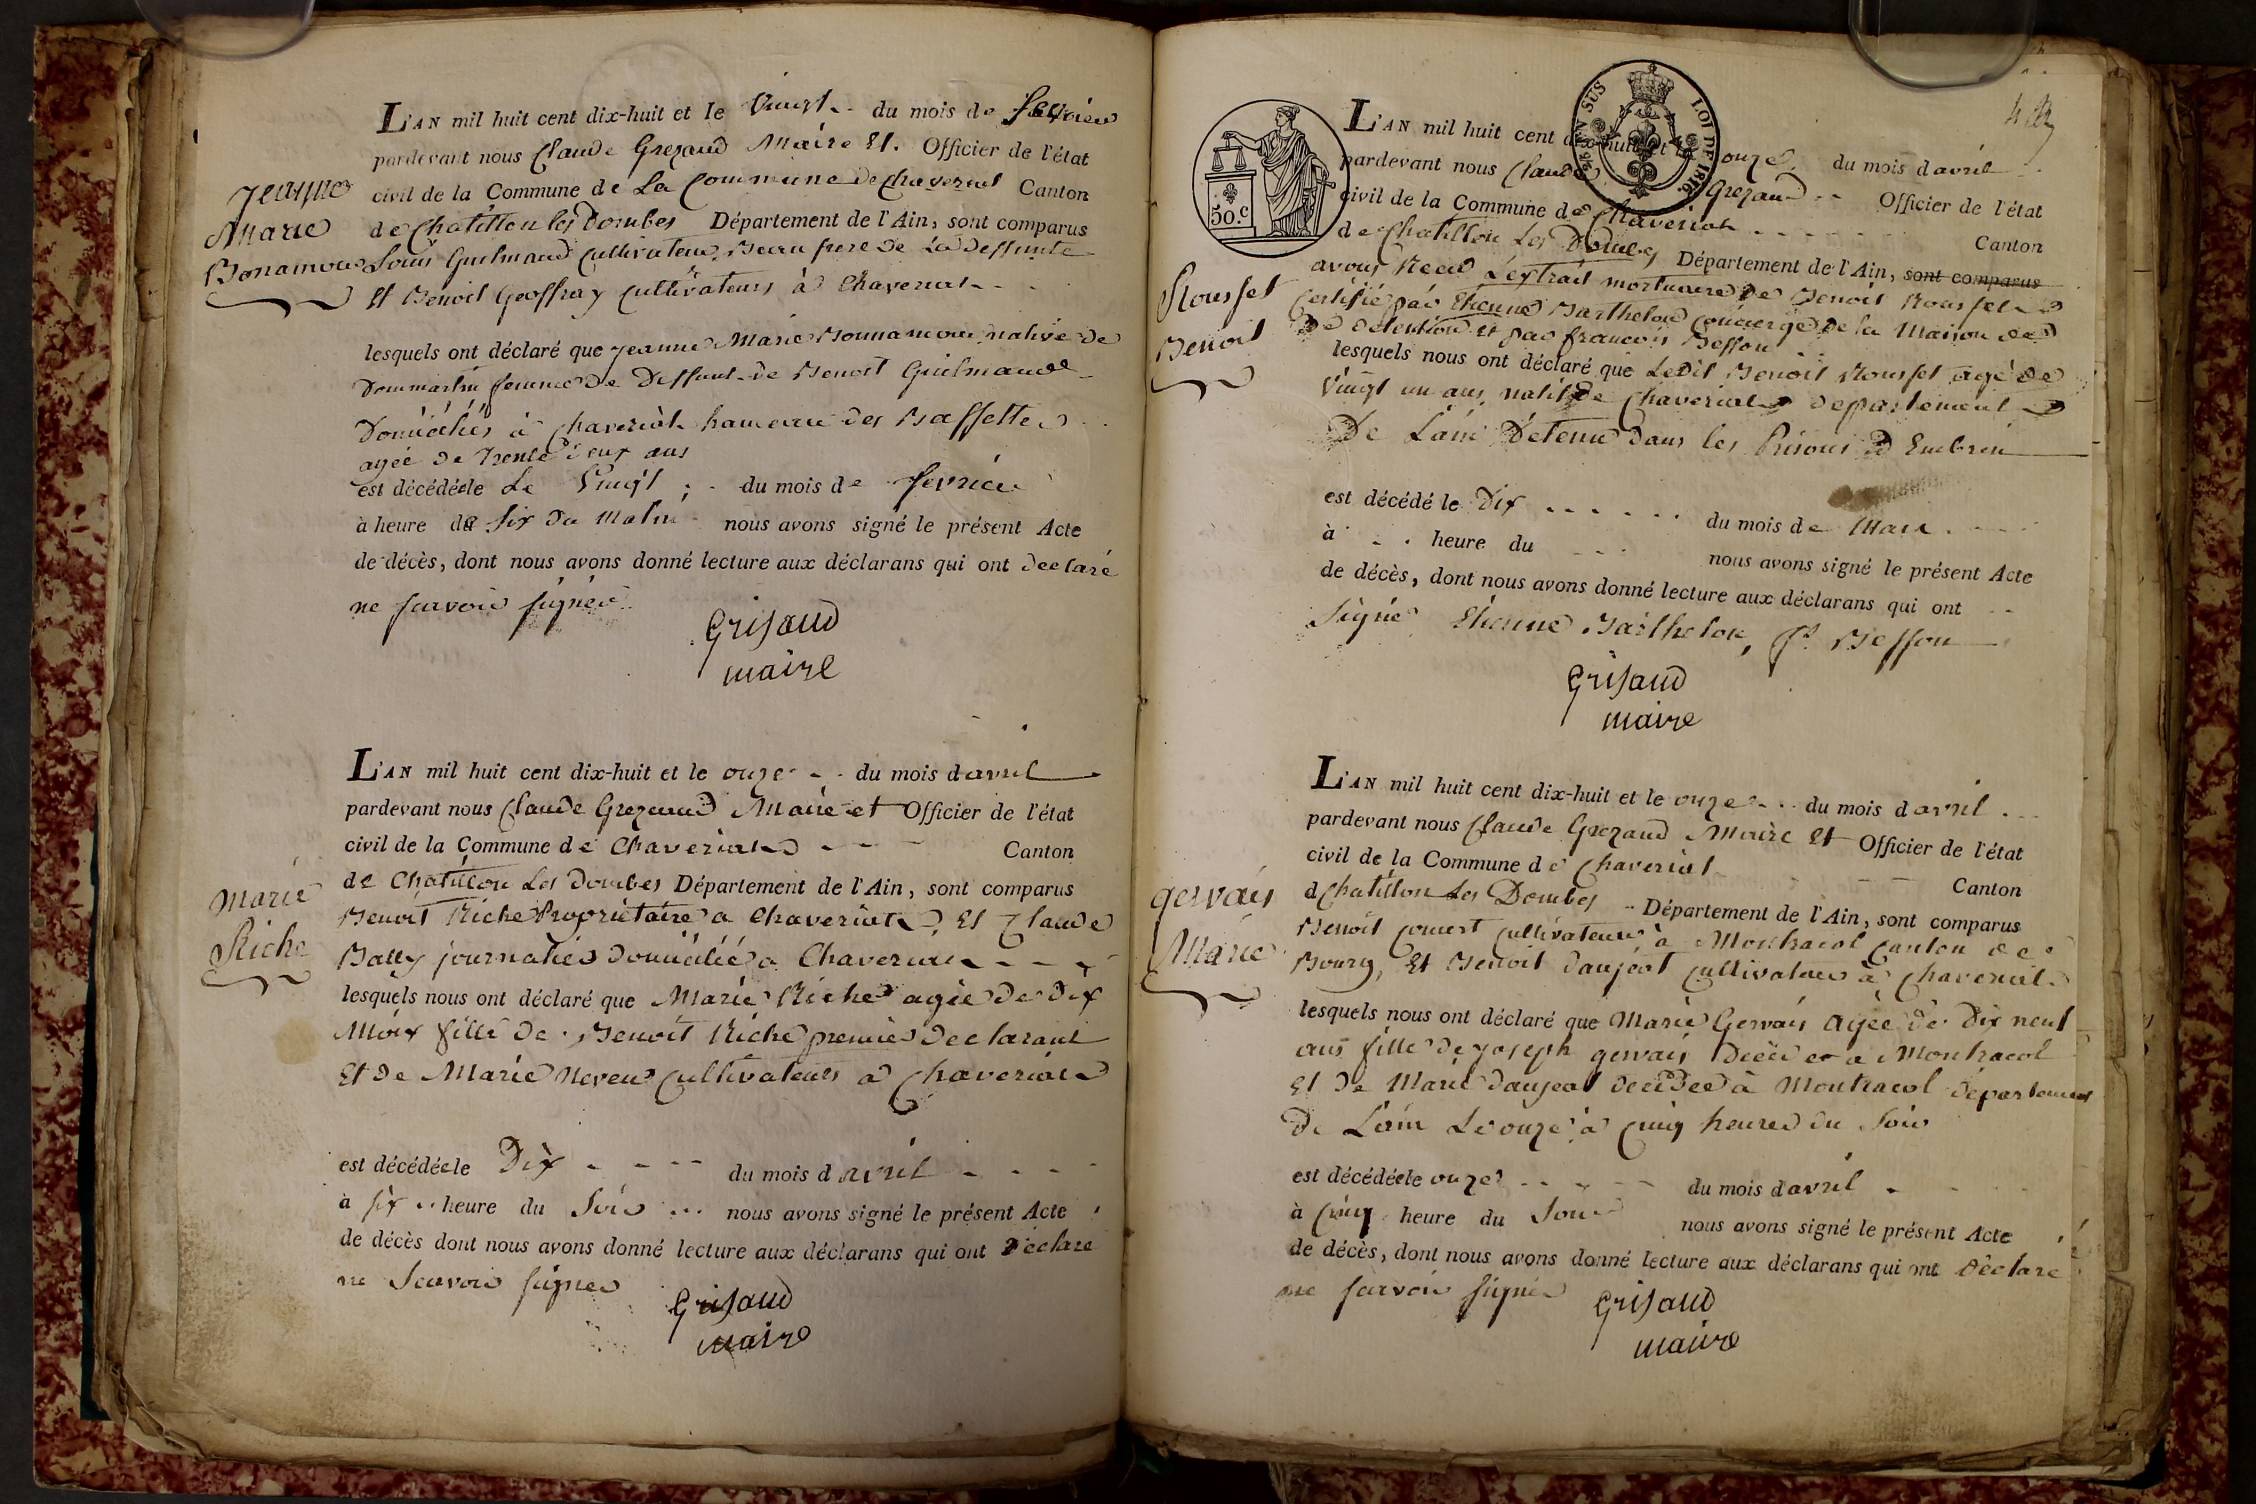 L'AN mil huit cent dix-huit et le Vingt du mois de fevrier
pardevant nous Claude Grezaud Maire Et Officier de l'état
civil de la Commune de La Commune de Chaveriat Canton
de Chatillon les Dombes Département de l'Ain, sont comparus
Louis Guilmaud Cultivateur, Beau frere de La deffunte
Et Benoit Geoffray Cultivateurs à Chaveriat
Jeanne
Marie
Bonamour
lesquels ont déclaré que Jeanne Marie Bonnamour native de
Dommartin femme de Deffunt de Benoit Guilmaud
Domiciliés à Chaveriat hameau des Baffettes
agée de trente deux ans
est décédée le Le Vingt du mois de fevrier
à heure de Six du Matin nous avons signé le présent Acte
de décès, dont nous avons donné lecture aux déclarans qui ont declaré
ne scavoir signer
Grisaud
maire
L'AN mil huit cent dix-huit et le onze du mois d avril
pardevant nous Claude Grezaud Maire et Officier de l'état
civil de la Commune de Chaveriat Canton
de Chatillon Les Dombes Département de l'Ain, sont comparus
Benoit Riche Propriétaire a Chaveriat, Et Claude
Bally journalier domicilié a Chaveriat
Marie
Riche
lesquels nous ont déclaré que Marie Riche agée de Dix
Mois fille de Benoit Riche premier declarant
Et de Marie Neveu Cultivateurs a Chaveriat
est décédée le Dix du mois d avril
à six heure du Soir nous avons signé le présent Acte
de décès dont nous avons donné lecture aux déclarans qui ont Declaré
ne Scavoir signer
Grisaud
maire
30.c
LOI DE 1816
L'AN mil huit cent dix-huit et le onze du mois d avril
pardevant nous Claude Grezaud Officier de l'état
civil de la Commune de Chaveriat Canton
de Chatillon Les Dombes Département de l'Ain, sont comparus
avons Recu L'extrait mortuaire de Benoit Rousset
Certifié par Etienne Barthelon concierge de la Maison de
de detention et par francois Besson
Rousset
Benoit
lesquels nous ont déclaré que Ledit Benoit Rousset agé de
Vingt un ans, natif de Chaveriat departement
De Lain Detenu dans les Prisons d Embrun
est décédé le Dix du mois de Mars
à heure du nous avons signé le présent Acte
de décès, dont nous avons donné lecture aux déclarans qui ont
Signé Etienne Barthelon, fs Besson
Grisaud
maire
L'AN mil huit cent dix-huit et le onze du mois d avril
pardevant nous Claude Grezaud Maire Et Officier de l'état
civil de la Commune de Chaveriat Canton
d Chatillon Les Dombes Département de l'Ain, sont comparus
Benoit Convert Cultivateur à Montracol Canton de
Bourg, Et Benoit danjeat Cultivateur à Chaveriat
gervais
Marie
lesquels nous ont déclaré que Marie Gervais agée de Dix neuf
ans fille de joseph gervais a Montracol
Et de Marie danjeat decedée à Montracol département
De Lain Le onze à Cinq heures du Soir
est décédée le onze du mois d avril
à Cinq heure du Soir nous avons signé le présent Acte
de décès, dont nous avons donné lecture aux déclarans qui ont Déclaré
ne scavoir signer
Grisaud
maire